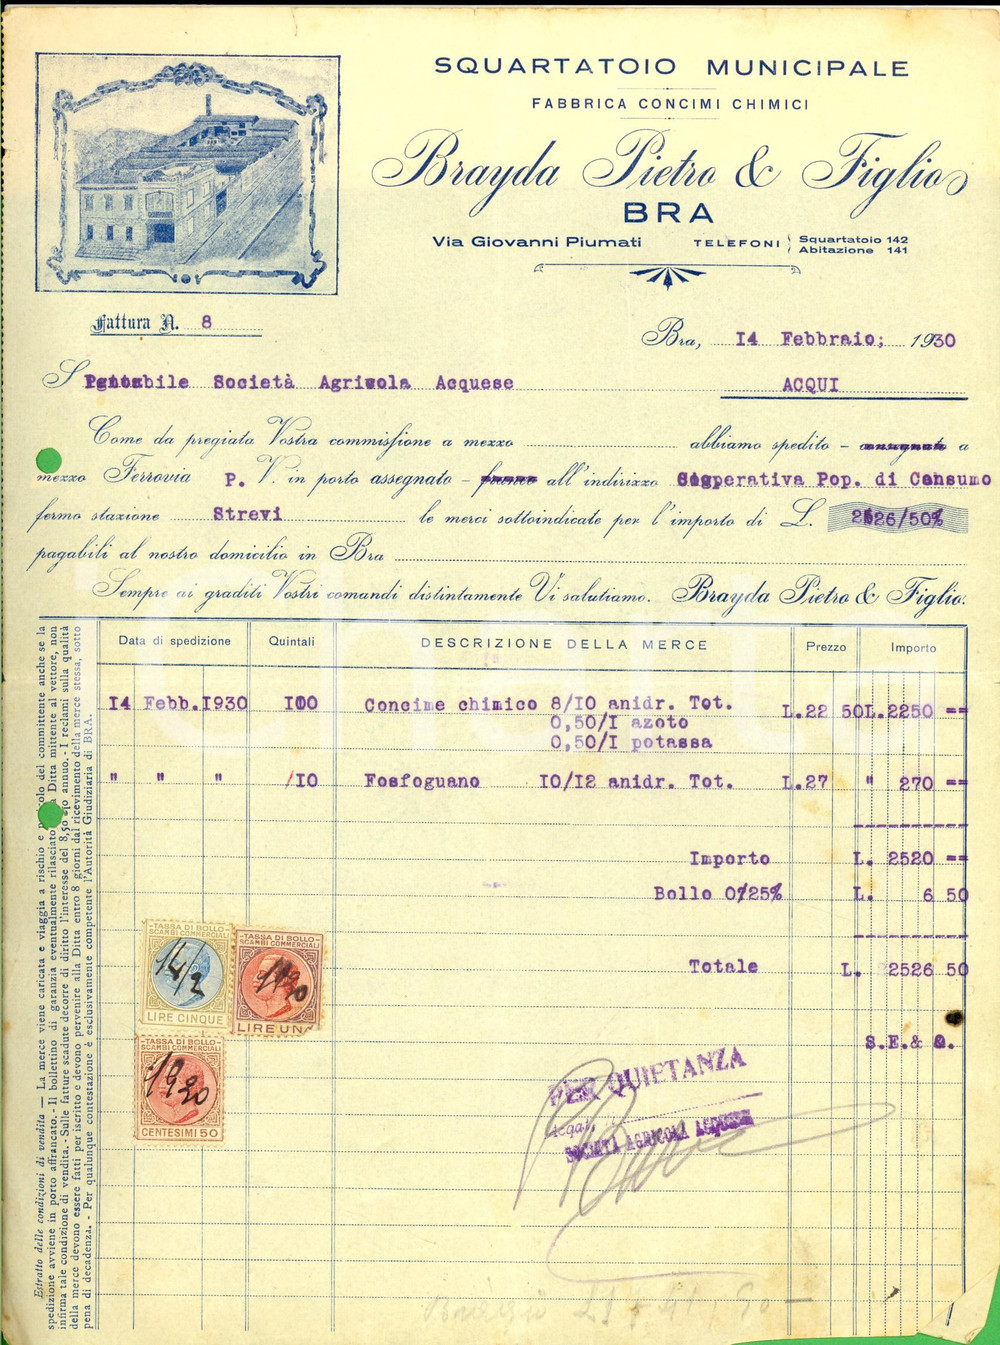 SQUARTATOIO MUNICIPALE
FABBRICA CONCIMI CHIMICI
Brayda Pietro & Figlio
BRA
Via Giovanni Piumati TELEFONI Squartatoio 142
Abitazione 141
Fattura N. 8
Bra, I4 Febbraio; 1930
Società Agricola Acquese ACQUI
Come da pregiata Vostra commissione a mezzo abbiamo spedito - a
mezzo Ferrovia P. V. in porto assegnato - all'indirizzo Cooperativa Pop. di Consumo
fermo stazione Strevi le merci sottoindicate per l'importo di L. 2526/50
pagabili al nostro domicilio in Bra
Sempre ai graditi Vostri comandi distintamente Vi salutiamo. Brayda Pietro & Figlio.
Data di spedizione Quintali DESCRIZIONE DELLA MERCE Prezzo Importo
I4 Febb.I930 I00 Concime chimico 8/I0 anidr. Tot. L.22 50 L.2250 ==
0,50/I azoto
0,50/I potassa
" " " I0 Fosfoguano I0/I2 anidr. Tot. L.27 " 270 ==
Importo L. 2520 ==
Bollo 0/25% L. 6 50
Totale L. 2526 50
S.E.& O.
TASSA DI BOLLO
SCAMBI COMMERCIALI
14/2
LIRE CINQUE
TASSA DI BOLLO
SCAMBI COMMERCIALI
LIRE UNA
TASSA DI BOLLO
SCAMBI COMMERCIALI
1930
CENTESIMI 50
PER QUIETANZA
SOCIETÀ AGRICOLA ACQUESE
Estratto delle condizioni di vendita — La merce viene caricata e viaggia a rischio e del committente anche se la
spedizione avviene in porto affrancato. - Il bollettino di garanzia eventualmente rilasciato Ditta mittente al vettore, non
infirma tale condizione di vendita. - Sulle fatture scadute decorre di diritto l'interesse del 8,50 o/o annuo. - I reclami sulla qualità
della merce devono essere fatti per iscritto e devono pervenire alla Ditta entro 8 giorni dal ricevimento della merce stessa, sotto
pena di decadenza. - Per qualunque contestazione è esclusivamente competente l'Autorità Giudiziaria di BRA.